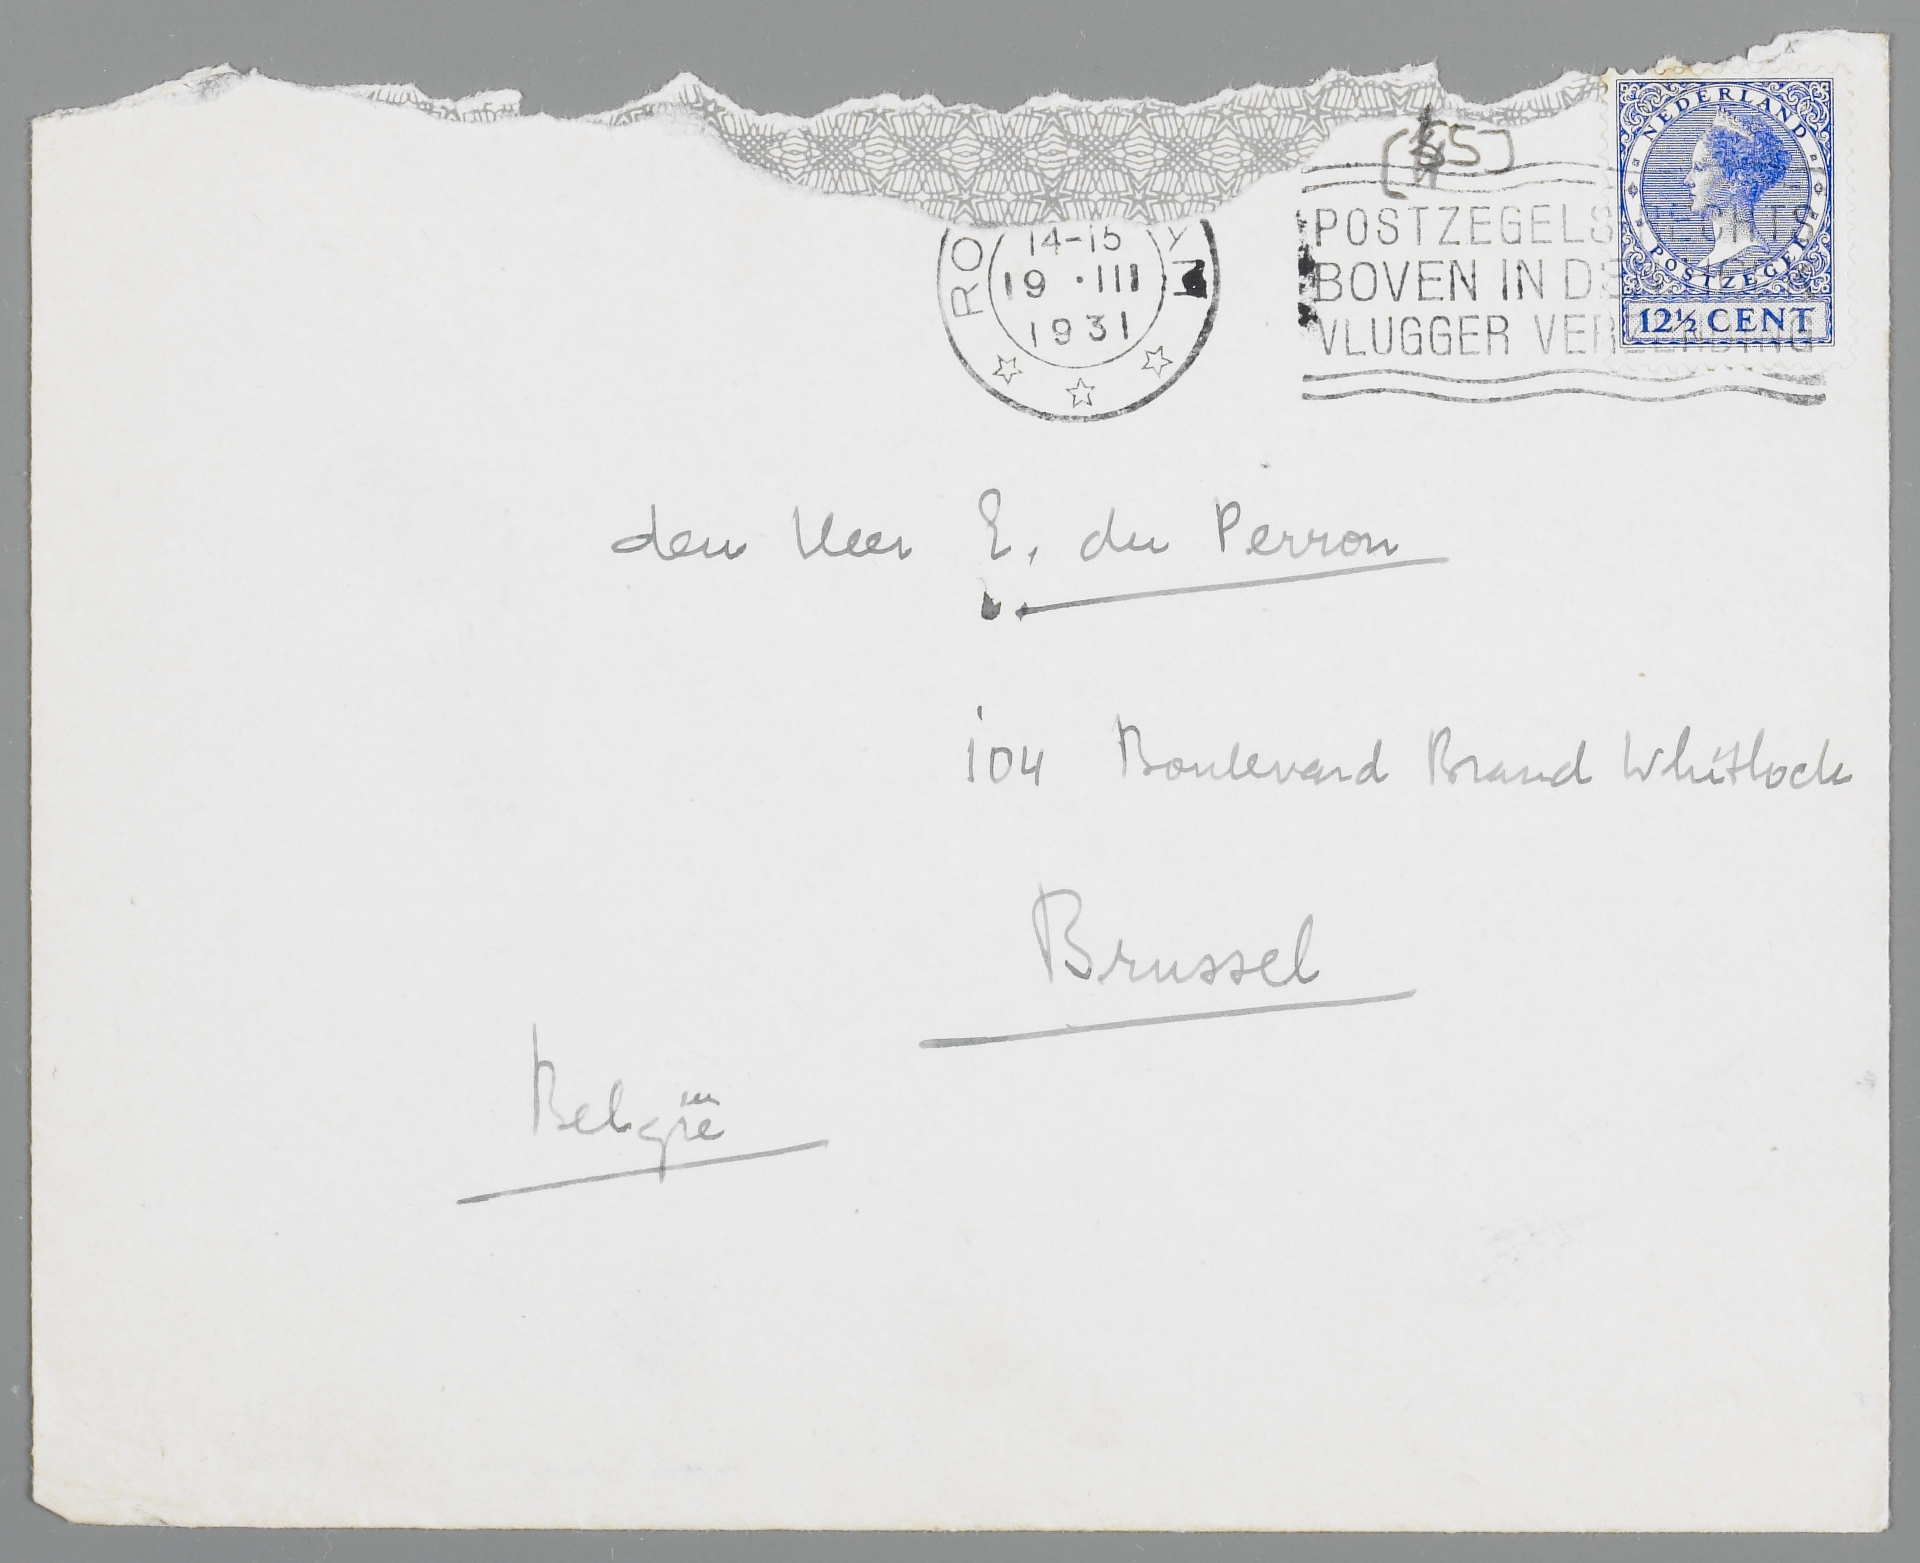 (45)
NEDERLAND
POSTZEGEL
12½ CENT
RO
14-15
19 · III
1931
POSTZEGELS RECHTS
BOVEN IN DE
VLUGGER VERZENDING
den Heer E. du Perron
104 Boulevard Brand Whitlock
Brussel
België